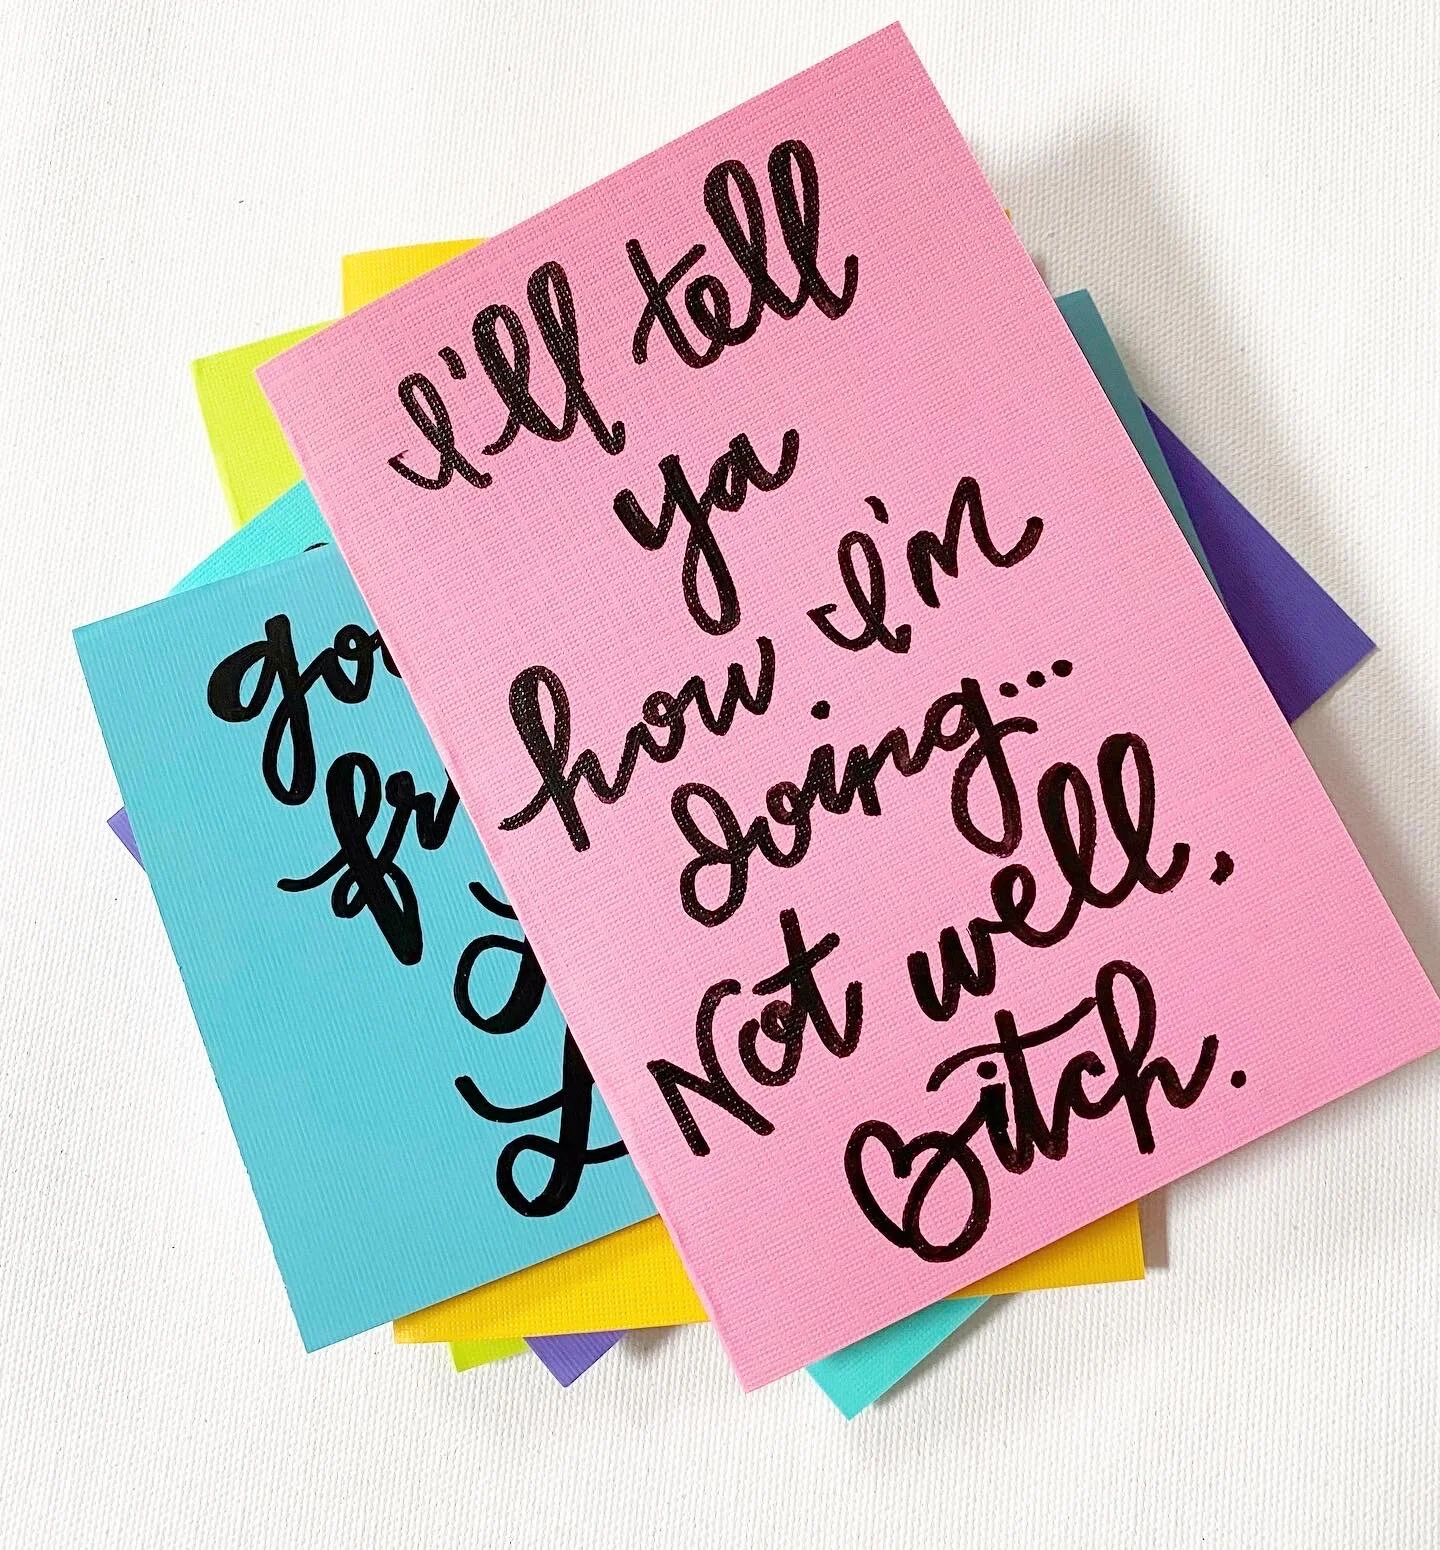 I'll tell
ya
how I'm
doing...
Not well,
Bitch.